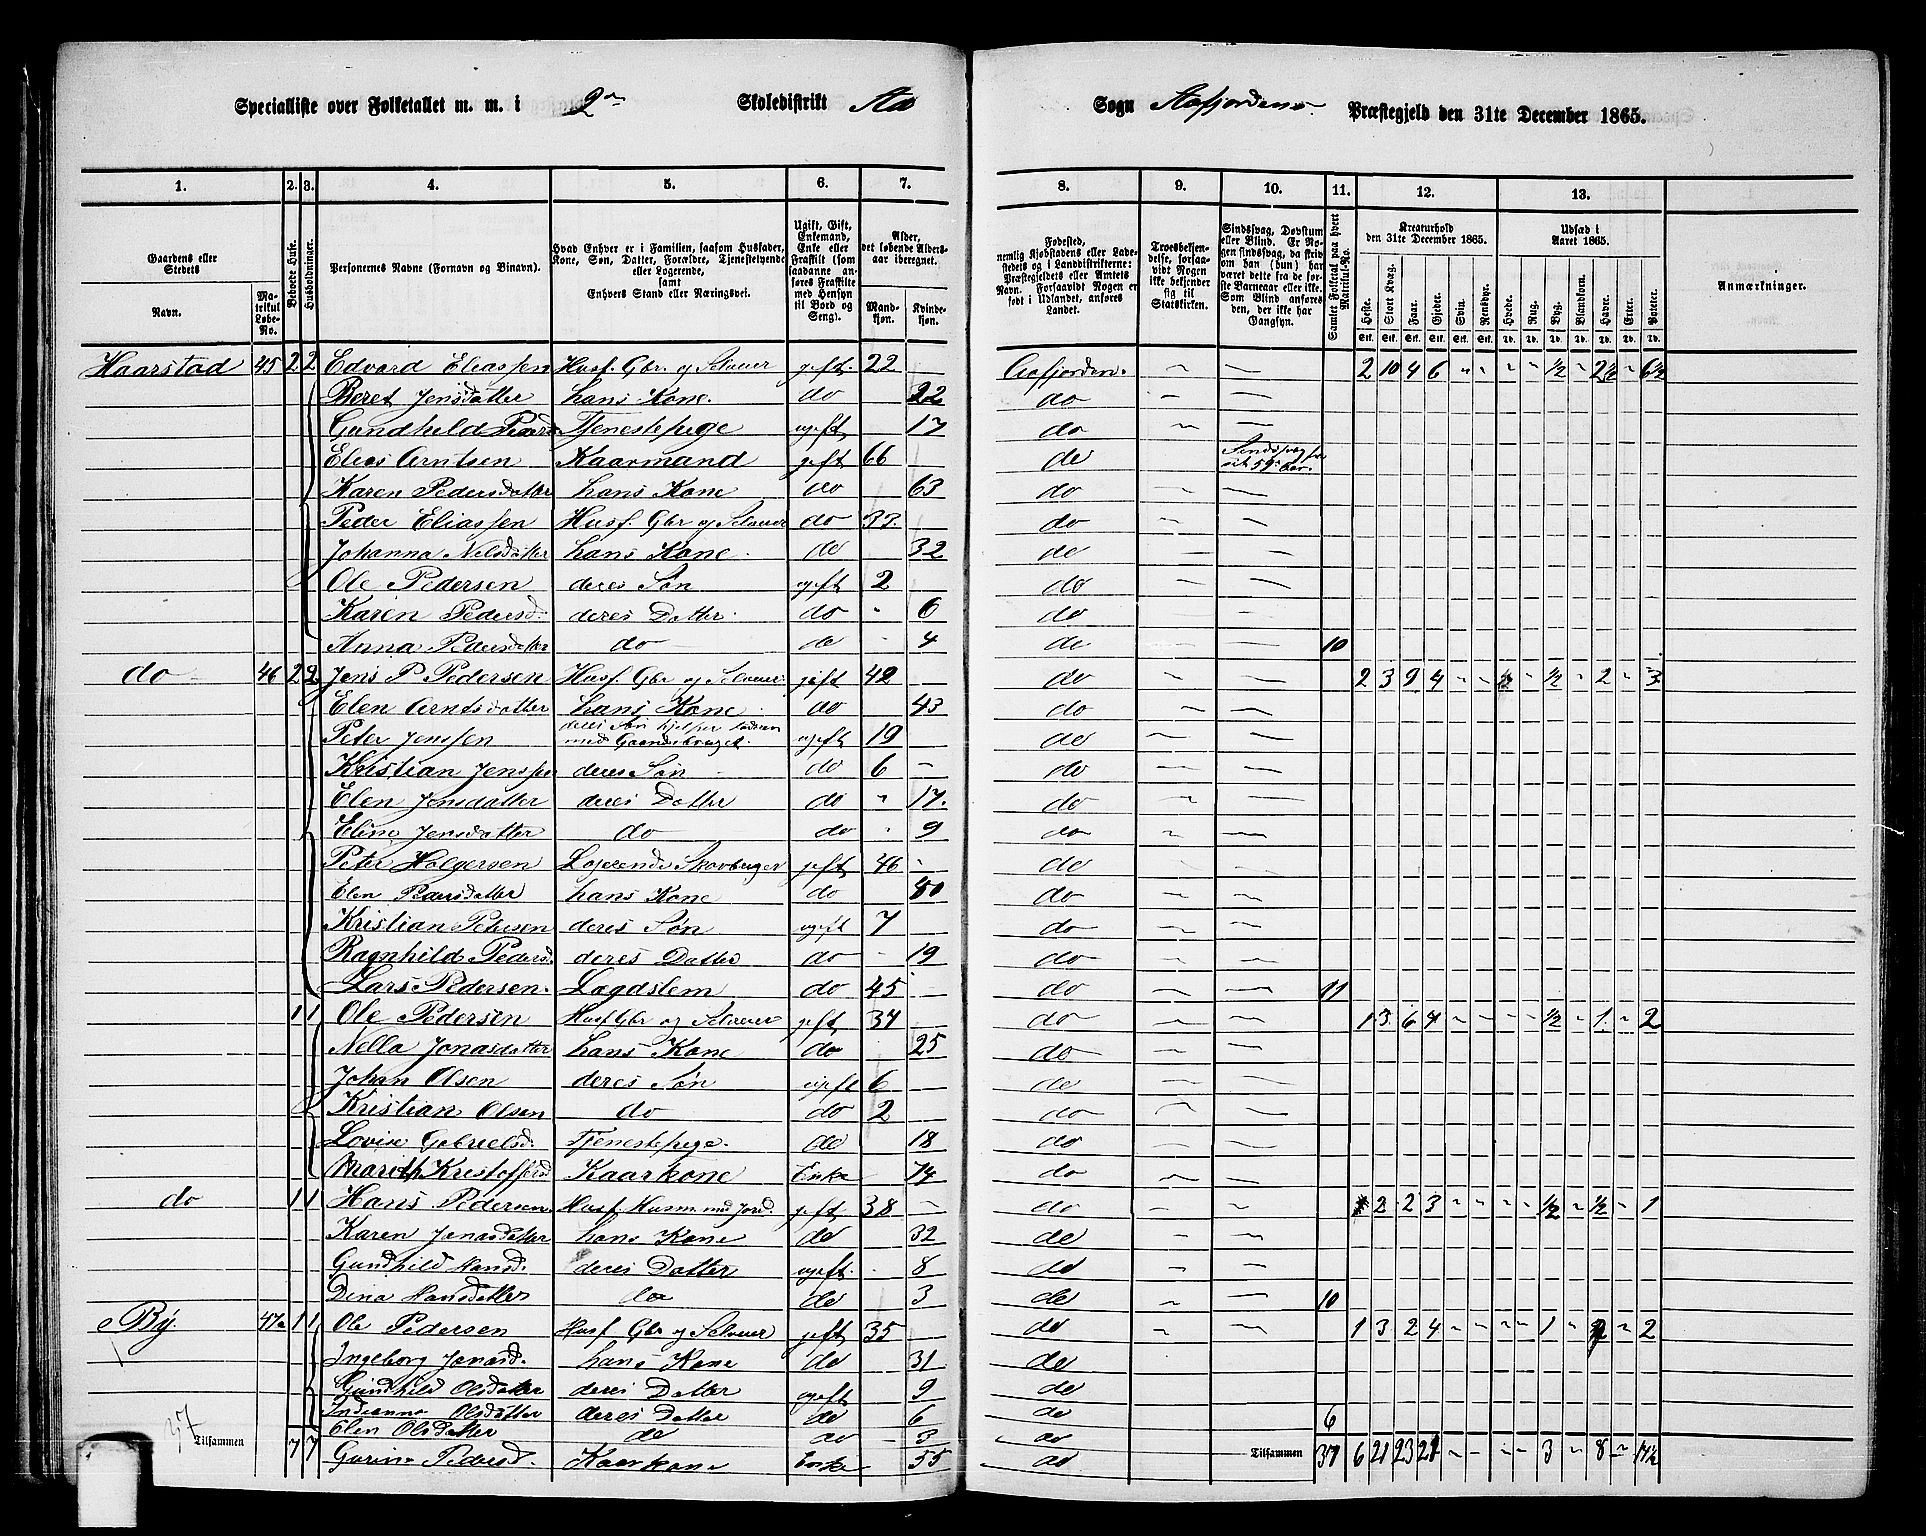 Specialliste over Folketallet m. m. i 2den Skoledistrikt Aa Sogn Aafjordens Præstegjeld den 31te December 1865.
1. 2. 3. 4. 5. 6. 7. 8. 9. 10. 11. 12. 13.
Gaardens eller Stedets Navn. Matrikul Løbe-No. Beboede Huse. Husholdninger. Personernes Navne (Fornavn og Binavn). Hvad Enhver er i Familien, saasom Husfader, Kone, Søn, Datter, Forældre, Tjenestetyende eller Logerende, samt Enhvers Stand eller Næringsvei. Ugift, Gift, Enkemand, Enke eller Fraskilt (som saadanne anføres Fraskilte med Hensyn til Bord og Seng). Alder, det løbende Aldersaar iberegnet. Mandkjøn. Kvindekjøn.
Fødested, nemlig Kjøbstadens eller Ladestedets og i Landdistrikterne: Præstegjeldets eller Amtets Navn. Forsaavidt Nogen er født i Udlandet, anføres Landet. Troesbekjendelse, forsaavidt Nogen ikke bekjender sig til Statskirken. Sindssvag, Døvstum eller Blind. Er Nogen sindssvag, da skriv om han (hun) har været dette fra de første Barneaar eller ikke. Som Blind anføres den, der ikke har Gangsyn. Samlet Folketal paa hvert Matrikul-No. Kreaturhold den 31te December 1865. Heste. Stort Kvæg. Faar. Gjeder. Svin. Rensdyr. Udsæd i Aaret 1865. Hvede. Rug. Byg. Blandkorn. Havre. Erter. Poteter. Anmærkninger.
Haarstad 45 2 2 Edvard Eliassen Husf. Gbr. og Selveier gift 22 Aafjorden. 2 10 4 6 ½ 2½ 6½
Beret Jensdatter hans Kone. do 22 do
Gundhild Tjenestepige ugift 17 do
Elias Arntsen Kaarmand gift 66 do Sindssvag
Karen Pedersdatter hans Kone do 63 do
Peder Eliassen Husf. Gbr og Selveier do 33 do
Johanna Nelsdatter hans Kone. do 32 do
Ole Pedersen deres Søn ugift 2 do
Karen Pedersd. deres Datter. do 6 do
Anna Pedersdatter do do 4 do 10
do 46 2 2 Jens P Pedersen Husf. Gbr og Selveier gift 42 do 2 3 9 4 ½ 2 3
Elen Arntsdatter hans Kone do 43 do
Peter Jenssen deres Søn hjelper Faderen med Gaardsbruget. ugift 19 do
Kristian Jenssen deres Søn do 6 do
Elen Jensdatter deres Datter do 17. do
Eline Jensdatter do do 9 do
Peter Holgersen Logerende gift 46 do
Elen Pedersdatter hans Kone do do
Kristian Petersen deres Søn ugift 7 do
Ragnhild Pedersd. deres Datter do 19 do
Lars Pedersen. Lægdslem do 45 do 11
1 1 Ole Pedersen Husf Gbr og Selveier gift 34 do 1 3 6 4 ½ 1 2
Nella Jonasdatter hans Kone do 25 do
Johan Olsen deres Søn ugift 6 do
Kristian Olsen do do 2 do
Lovise Gabrielsd. Tjenestepige. do 18 do
Marith Kristoffersd Kaarkone Enke 74 do
do 1 1 Hans Pedersen. Husf. Husm. med Jord. gift 38 do 2 2 3 ½ ½ 1
Karen Jonasdatter hans Kone do 32 do
Gundhild Hansd. deres Datter ugift. 8 do
Dina Hansdatter do do 3 do 10
By. 47a 1 1 Ole Pedersen Husf Gbr og Selveier gift 35 do 1 3 2 4 1 2 2
Ingeborg Jonasd. hans Kone do 31 do
Gundhild Olsdatter deres Datter ugift 9 do
Olsdatter deres Datter do 6 do 6
Elen Olsdatter do do 3 do
Gurine Pedersd. Kaarkone Enke 55 do
37 Tilsammen 7 7 Tilsammen 37 6 21 23 21 3 8